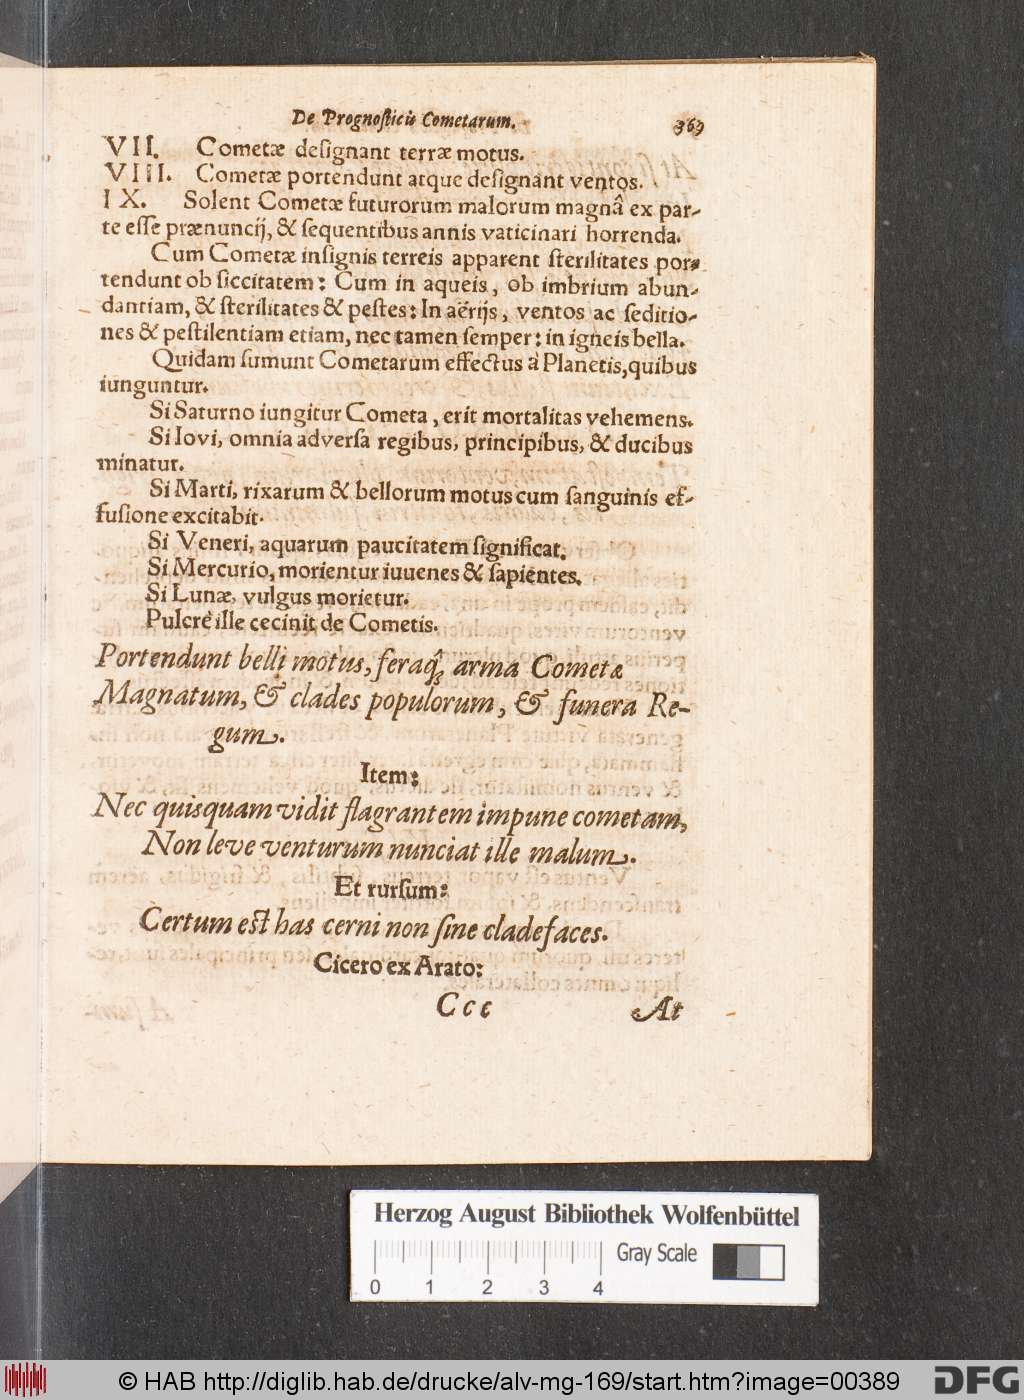 De Prognosticis Cometarum. 369
VII. Cometæ deſignant terræ motus.
VIII. Cometæ portendunt atque deſignant ventos.
IX. Solent Cometæ futurorum malorum magnâ ex par-
te eſſe prænuncij, & ſequentibus annis vaticinari horrenda.
Cum Cometæ inſignis terreis apparent ſterilitates por-
tendunt ob ſiccitatem: Cum in aqueis, ob imbrium abun-
dantiam, & ſterilitates & peſtes: In aërijs, ventos ac ſeditio-
nes & peſtilentiam etiam, nec tamen ſemper: in igneis bella.
Quidam ſumunt Cometarum effectus à Planetis, quibus
iunguntur.
Si Saturno iungitur Cometa, erit mortalitas vehemens.
Si Iovi, omnia adverſa regibus, principibus, & ducibus
minatur.
Si Marti, rixarum & bellorum motus cum ſanguinis ef-
fuſione excitabit.
Si Veneri, aquarum paucitatem ſignificat.
Si Mercurio, morientur iuuenes & ſapientes.
Si Lunæ, vulgus morietur.
Pulcrè ille cecinit de Cometis.
Portendunt belli motus, feraq́; arma Cometæ
Magnatum, & clades populorum, & funera Re-
gum.
Item:
Nec quisquam vidit flagrantem impune cometam,
Non leve venturum nunciat ille malum.
Et rurſum:
Certum eſt has cerni non ſine clade faces.
Cicero ex Arato:
Ccc At
Herzog August Bibliothek Wolfenbüttel
Gray Scale
0 1 2 3 4
© HAB http://diglib.hab.de/drucke/alv-mg-169/start.htm?image=00389 DFG